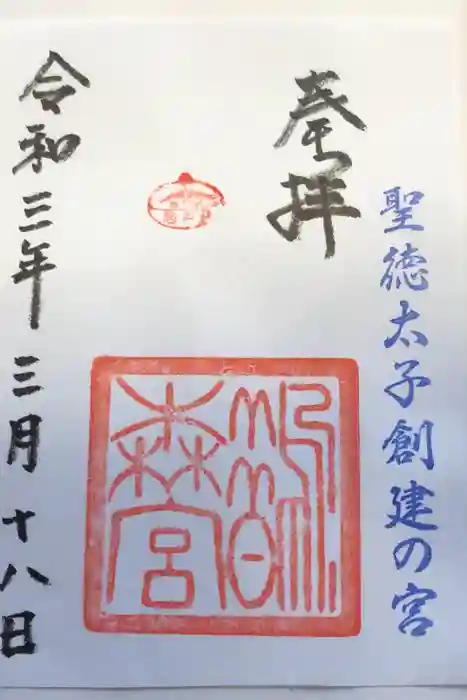 聖徳太子創建の宮
奉拝
鵲森宮
令和三年 三月十八日